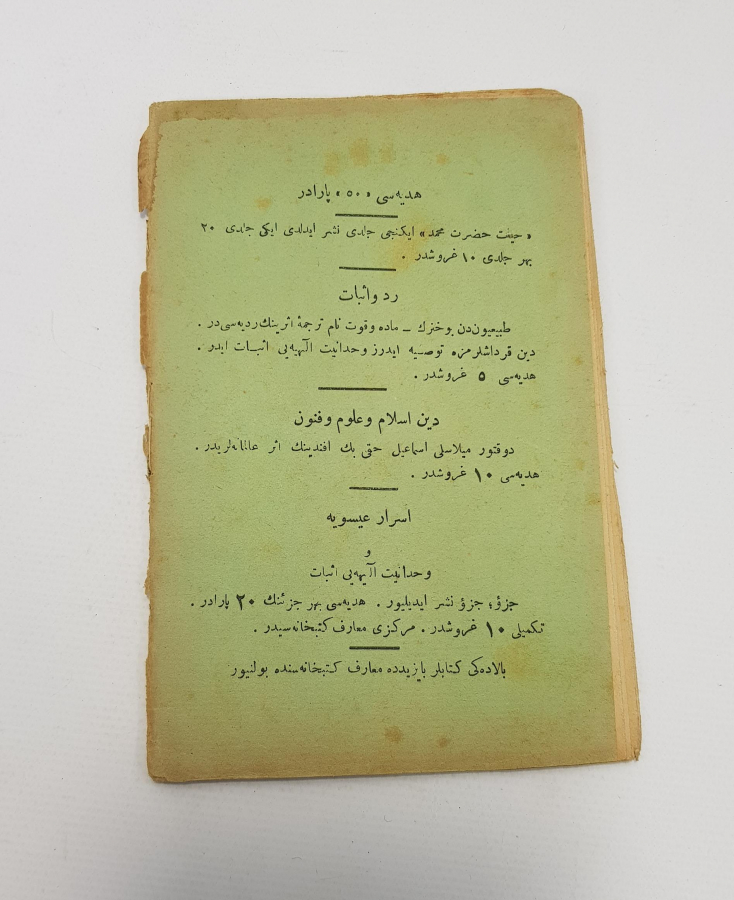 هدیه‌سی « ۵۰ » پارادر
« حیات حضرت محمد» ایکنجی جلدی نشر ایدلدی ایکی جلدی ۲۰
بهر جلدی ۱۰ غروشدر .
رد و اثبات
طبیعیون‌دن بوخنرك ــ ماده و قوت نام ترجمهٔ اثرینك ردیه‌سی‌در .
دین قرداشلرمزه توصیه ایدرز وحدانیت الٓهیه‌یی اثبات ایدر .
هدیه‌سی ۵ غروشدر .
دین اسلام و علوم و فنون
دوقتور میلاسلی اسماعیل حقی بك افندینك اثر عالمانه‌لریدر .
هدیه‌سی ۱۰ غروشدر .
اسرار عیسویه
و
وحدانیت الٓهیه‌یی اثبات
جزؤ؛ جزؤ نشر ایدیلیور . هدیه‌سی بهر جزئنك ۲۰ پارادر .
تکمیلی ۱۰ غروشدر . مرکزی معارف کتبخانه‌سیدر .
بالاده‌کی کتابلر بایزیدده معارف کتبخانه‌سنده بولنیور